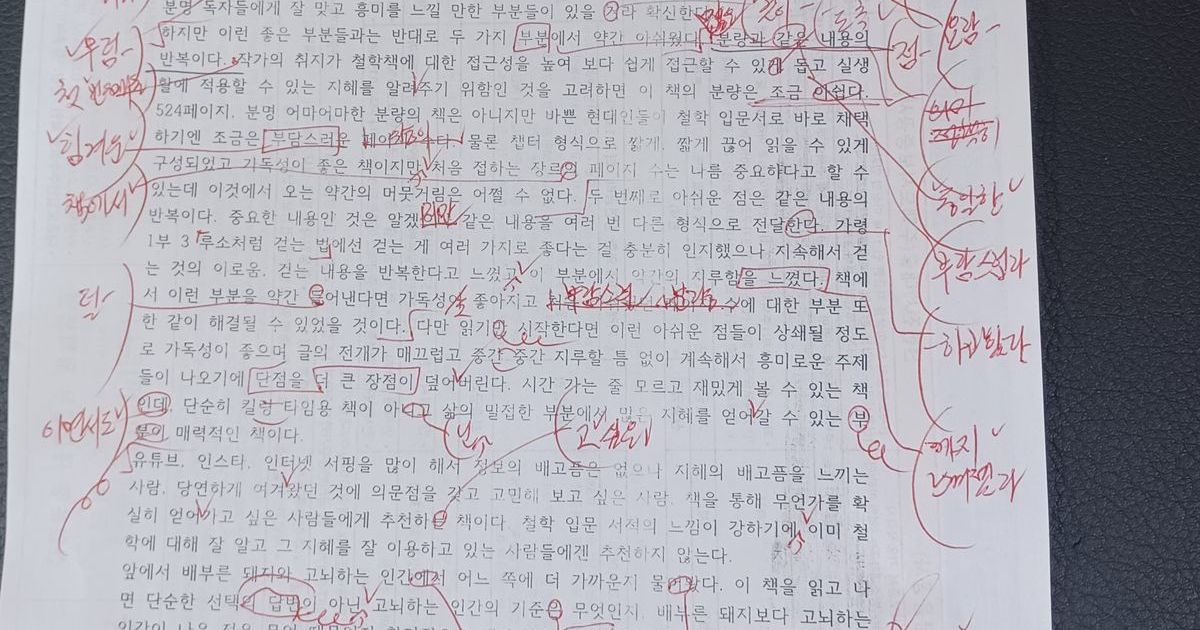 분명 독자들에게 잘 맞고 흥미를 느낄 만한 부분들이 있을 거라 확신한다
하지만 이런 좋은 부분들과는 반대로 두 가지 부분에서 약간 아쉬웠다. 분량과 같은 내용의
반복이다. 작가의 취지가 철학책에 대한 접근성을 높여 보다 쉽게 접근할 수 있게 돕고 실생
활에 적용할 수 있는 지혜를 알려주기 위함인 것을 고려하면 이 책의 분량은 조금 아쉽다.
524페이지. 분명 어마어마한 분량의 책은 아니지만 바쁜 현대인들이 철학 입문서로 바로 채택
하기엔 조금은 부담스러운 물론 챕터 형식으로 짧게, 짧게 끊어 읽을 수 있게
구성되었고 가독성이 좋은 책이지만 처음 접하는 장르의 페이지 수는 나름 중요하다고 할 수
있는데 이것에서 오는 약간의 머뭇거림은 어쩔 수 없다. 두 번째로 아쉬운 점은 같은 내용의
반복이다. 중요한 내용인 것은 알겠 같은 내용을 여러 번 다른 형식으로 전달한다. 가령
1부 3 루소처럼 걷는 법에선 걷는 게 여러 가지로 좋다는 걸 충분히 인지했으나 지속해서 걷
는 것의 이로움, 걷는 내용을 반복한다고 느꼈고 이 부분에서 약간의 지루함을 느꼈다. 책에
서 이런 부분을 약간 덜어낸다면 가독성도 좋아지고 수에 대한 부분 또
한 같이 해결될 수 있었을 것이다. 다만 읽기만 시작한다면 이런 아쉬운 점들이 상쇄될 정도
로 가독성이 좋으며 글의 전개가 매끄럽고 중간 중간 지루할 틈 없이 계속해서 흥미로운 주제
들이 나오기에 단점을 더 큰 장점이 덮어버린다. 시간 가는 줄 모르고 재밌게 볼 수 있는 책
인데, 단순히 킬링 타임용 책이 아니고 삶의 밀접한 부분에서 많은 지혜를 얻어갈 수 있는 부
분이 매력적인 책이다.
유튜브, 인스타, 인터넷 서핑을 많이 해서 정보의 배고픔은 없으나 지혜의 배고픔을 느끼는
사람, 당연하게 여겨왔던 것에 의문점을 갖고 고민해 보고 싶은 사람, 책을 통해 무언가를 확
실히 얻어가고 싶은 사람들에게 추천하는 책이다. 철학 입문 서적의 느낌이 강하기에 이미 철
학에 대해 잘 알고 그 지혜를 잘 이용하고 있는 사람들에겐 추천하지 않는다.
앞에서 배부른 돼지와 고뇌하는 인간에서 어느 쪽에 더 가까운지 물어봤다. 이 책을 읽고 나
면 단순한 선택의 답변이 아닌 고뇌하는 인간의 기준은 무엇인지, 배부른 돼지보다 고뇌하는
힘겨운
책에서
덜
이면서도
고 싶은
점
동일한
부담스럽다
하고 있다
까지
느껴졌다